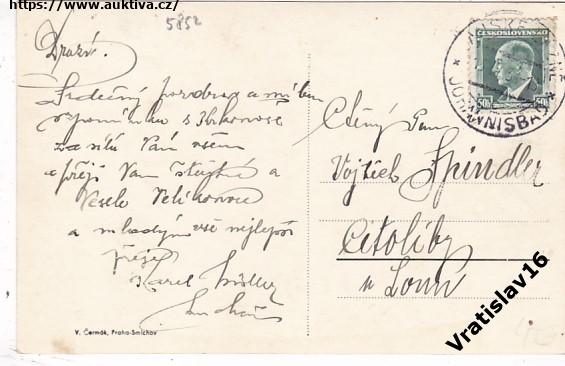 https://www.auktiva.cz/
5852
Drazí.
Srdečný pozdrav a milou
vzpomínku s Krkonoš
zasílá Vám všem
a přeji Vám šťastné a
Veselé Velikonoce
a mladým vše nejlepší
přeje
Karel
ČESKOSLOVENSKO
50h 50h
JOHANNISBAD
Ctěný Pan
Vojtěch Špindler
Citoliby
u Loun
V. Čermák, Praha-Smíchov
Vratislav16